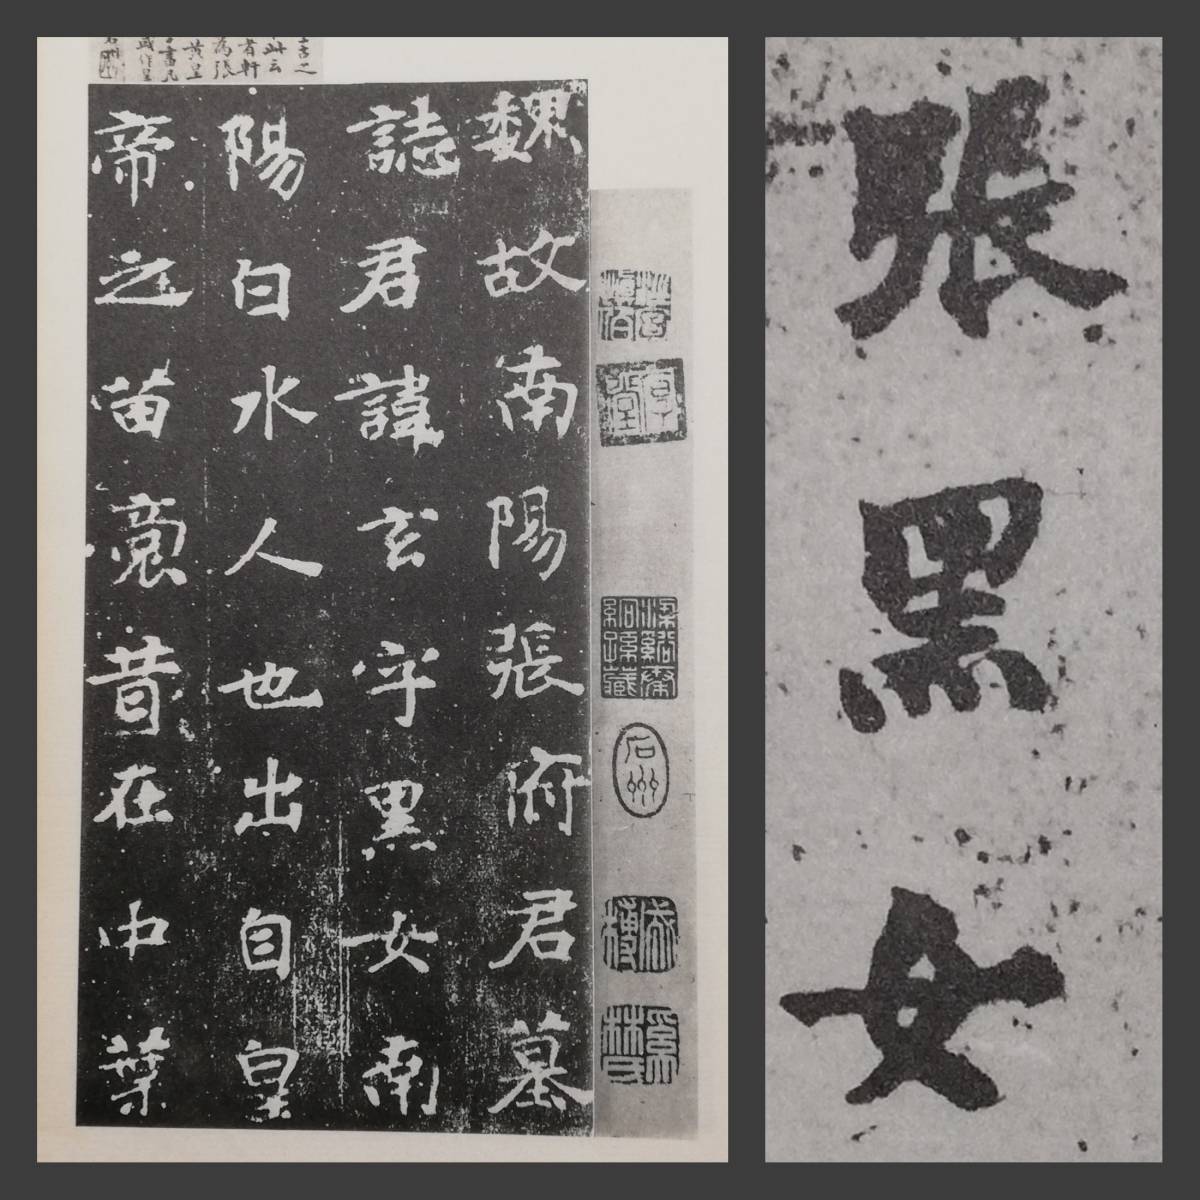 魏故南陽張府君墓
誌君諱玄字黑女南
陽白水人也出自皇
帝之苗裔昔在中葉
石州
張黑女